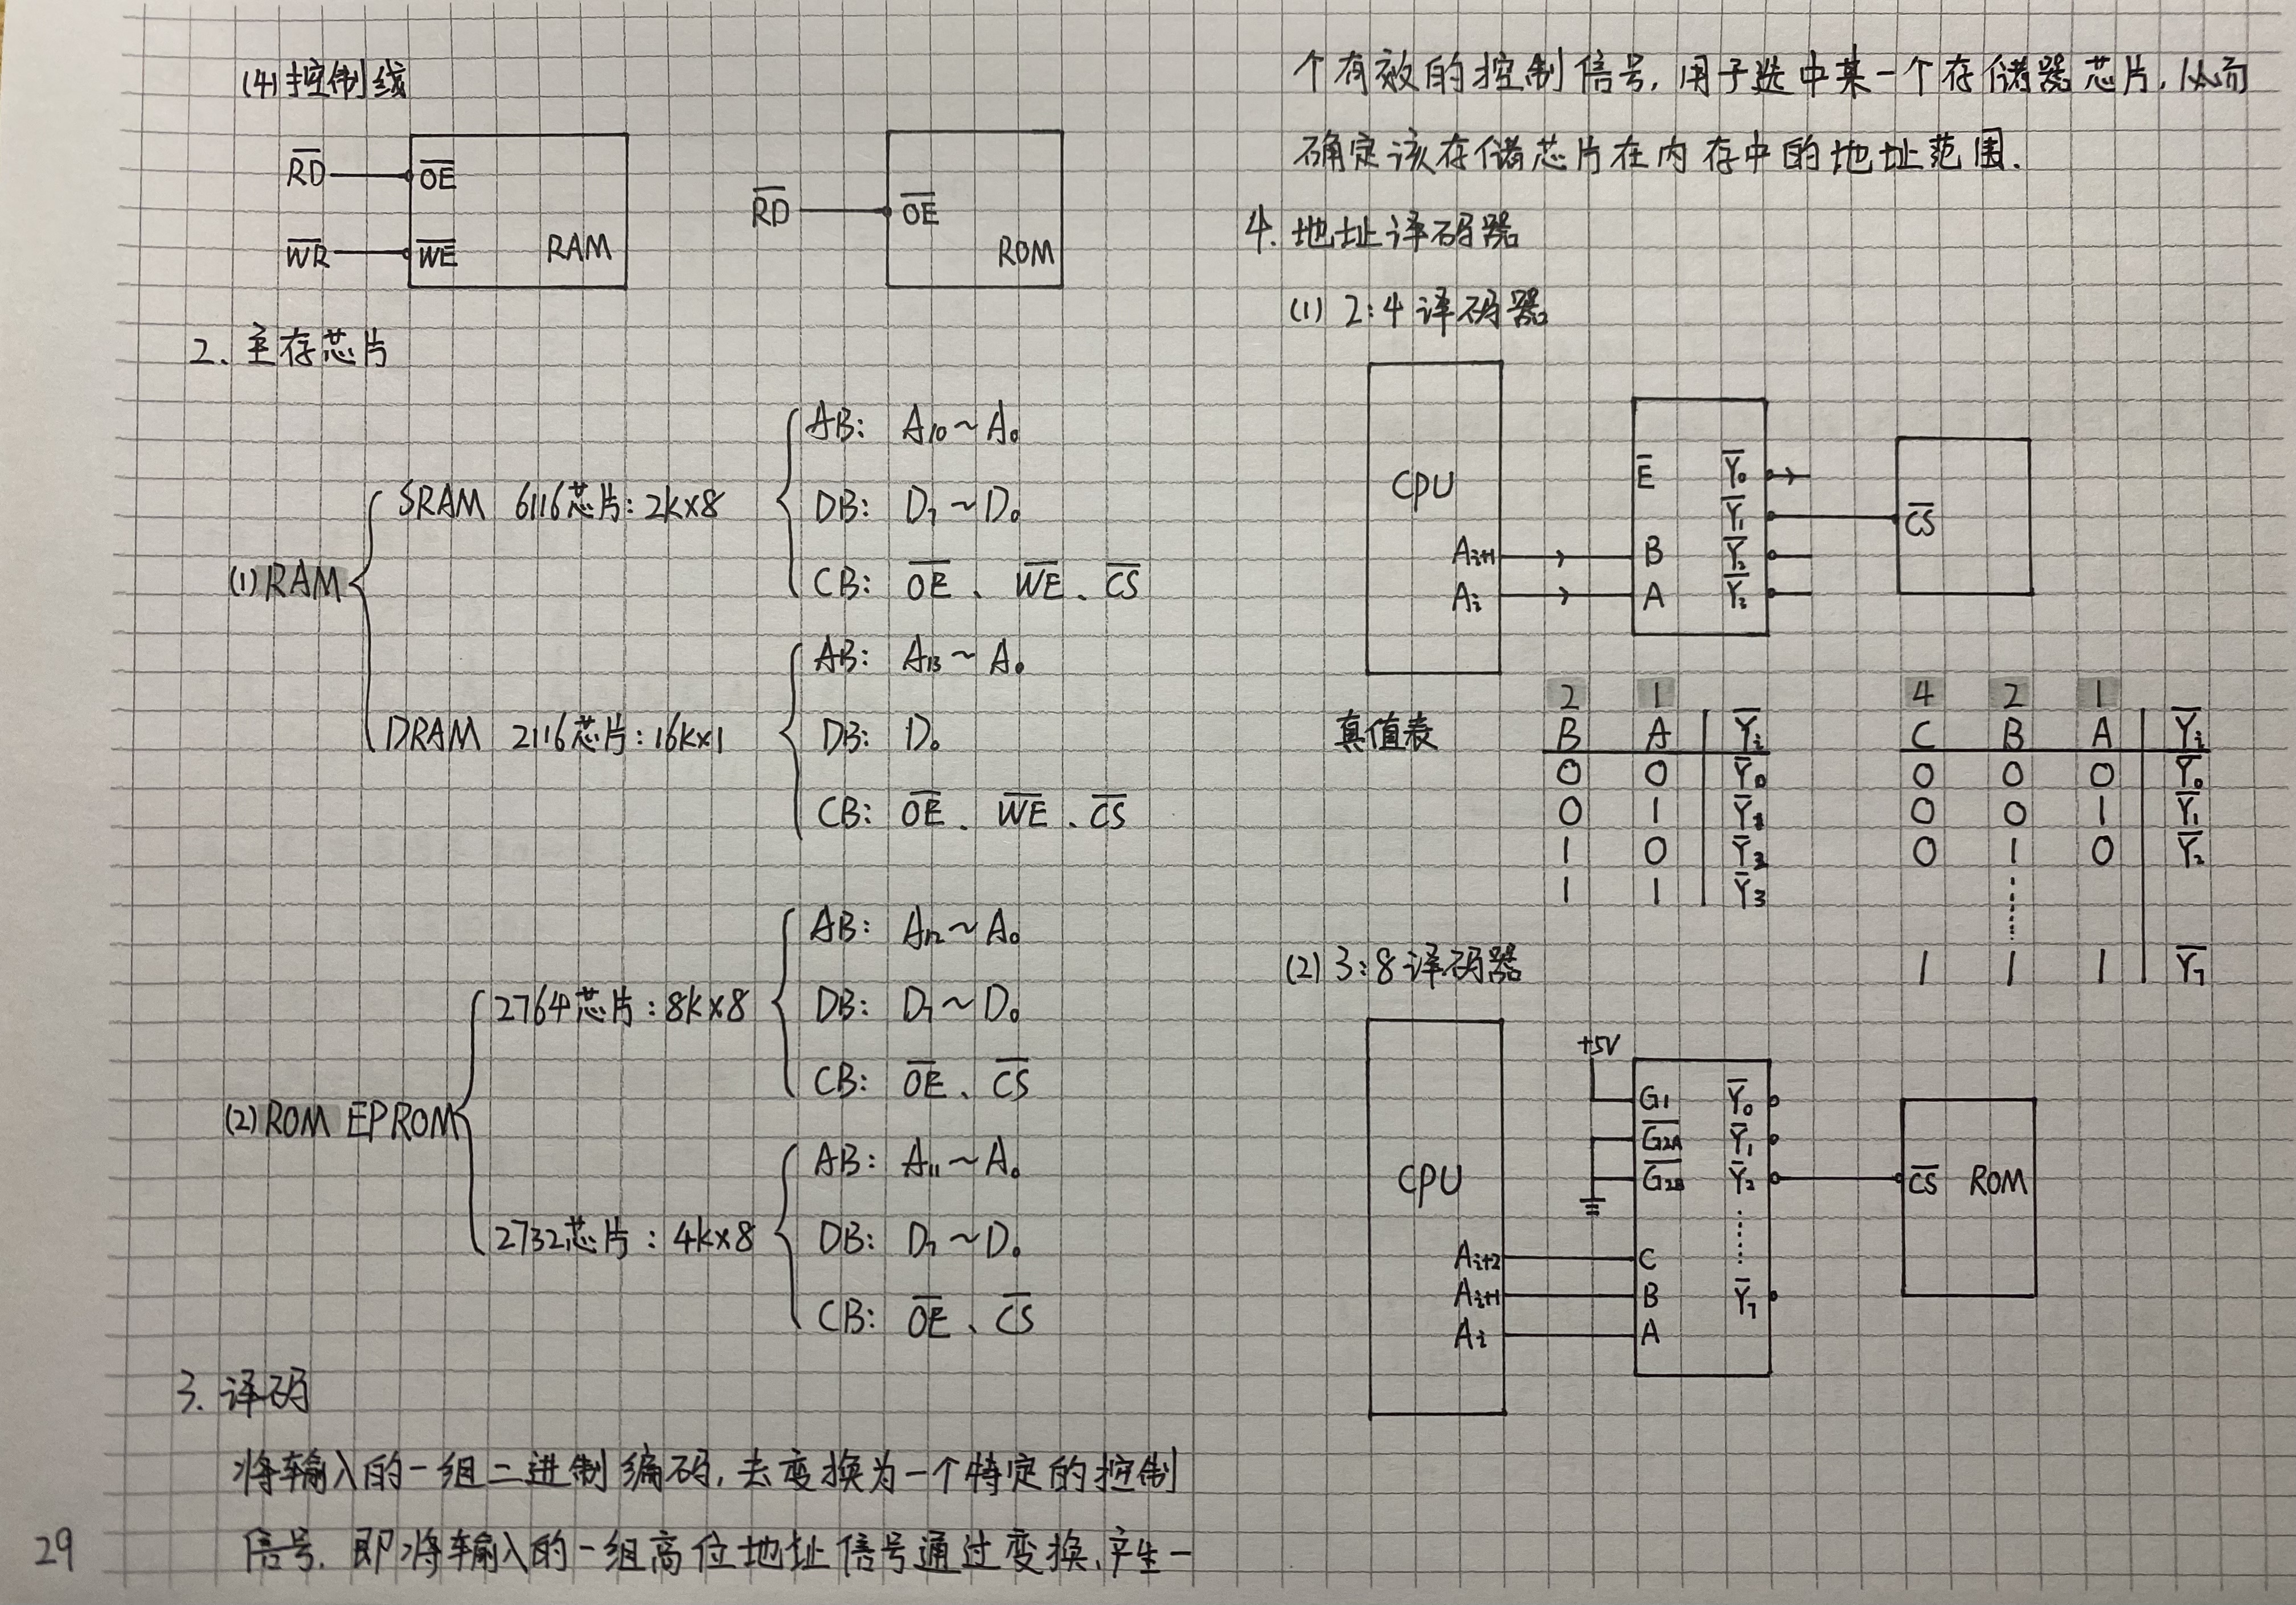 (4)控制线
R̅D̅ O̅E̅
W̅R̅ W̅E̅ RAM
R̅D̅ O̅E̅
ROM
2. 主存芯片
(1) RAM
SRAM 6116芯片: 2K×8
AB: A₁₀~A₀
DB: D₇~D₀
CB: O̅E̅、W̅E̅、C̅S̅
DRAM 2116芯片: 16K×1
AB: A₁₃~A₀
DB: D₀
CB: O̅E̅、W̅E̅、C̅S̅
(2) ROM EPROM
2764芯片: 8K×8
AB: A₁₂~A₀
DB: D₇~D₀
CB: O̅E̅、C̅S̅
2732芯片: 4K×8
AB: A₁₁~A₀
DB: D₇~D₀
CB: O̅E̅、C̅S̅
3. 译码
将输入的一组二进制编码,去变换为一个特定的控制
信号.即将输入的一组高位地址信号通过变换,产生一
29
个有效的控制信号,用于选中某一个存储器芯片,从而
确定该存储芯片在内存中的地址范围.
4. 地址译码器
(1) 2:4译码器
CPU
Aᵢ₊₁
Aᵢ
E̅ Y̅₀
Y̅₁
B Y̅₂
A Y̅₃
C̅S̅
真值表
2 1
B A Y̅ᵢ
0 0 Y̅₀
0 1 Y̅₁
1 0 Y̅₂
1 1 Y̅₃
4 2 1
C B A Y̅ᵢ
0 0 0 Y̅₀
0 0 1 Y̅₁
0 1 0 Y̅₂
……
1 1 1 Y̅₇
(2) 3:8译码器
CPU
Aᵢ₊₂
Aᵢ₊₁
Aᵢ
+5V
G1 Y̅₀
G̅2̅A̅ Y̅₁
G̅2̅B̅ Y̅₂
……
C
B Y̅₇
A
C̅S̅ ROM